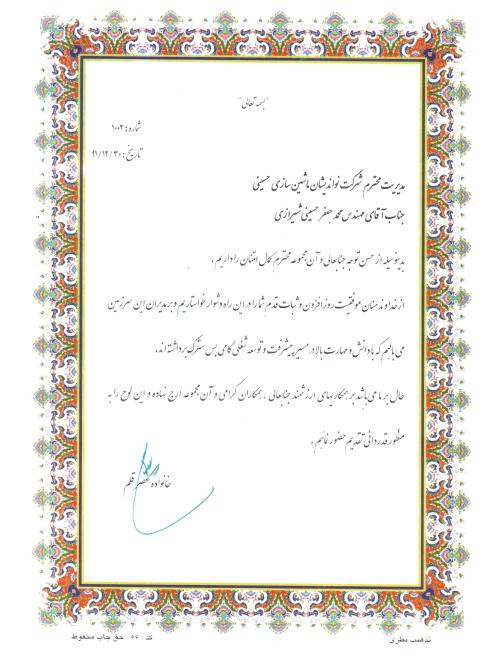 "بسمه تعالی"
شماره : ۱۰۰۲
تاریخ : ۹۱/۱۲/۳۰
مدیریت محترم شرکت نواندیشان ماشین سازی حسینی
جناب آقای مهندس محمد جعفر حسینی شیرازی
بدینوسیله از حسن توجه جنابعالی و آن مجموعه محترم کمال امتنان را داریم .
از خداوند منان موفقیت روز افزون و ثبات قدم شما را در این راه دشوار خواستاریم و بر مدیران این سرزمین
می بالیم که با دانش و مهارت بالا در مسیر پیشرفت و توسعه شغلی گامی بس سترگ برداشته اند.
حال بر ما می باشد بر همکاریهای ارزشمند جنابعالی ، همکاران گرامی و آن مجموعه ارج نهاده و این لوح را به
منظور قدردانی تقدیم حضور نمائیم .
خانواده عصر قلم
تذهیب نظری
کد : ۶۶ حق چاپ محفوظ